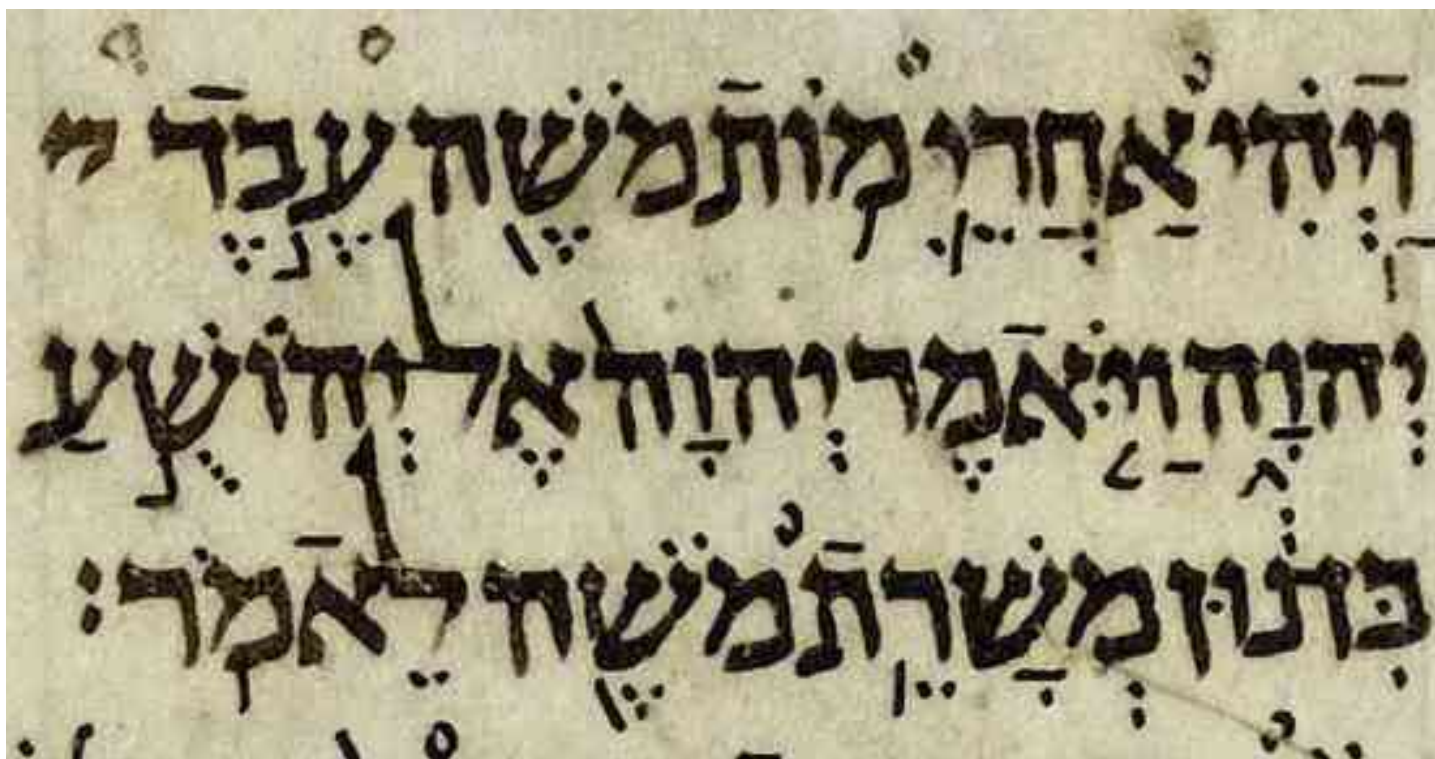 וַיְהִ֗י אַחֲרֵ֛י מ֥וֹת מֹשֶׁ֖ה עֶ֣בֶד יי
יְהוָ֑ה וַיֹּ֤אמֶר יְהוָה֙ אֶל יְהוֹשֻׁ֣עַ
בִּן נ֔וּן מְשָׁרֵ֥ת מֹשֶׁ֖ה לֵאמֹֽר׃